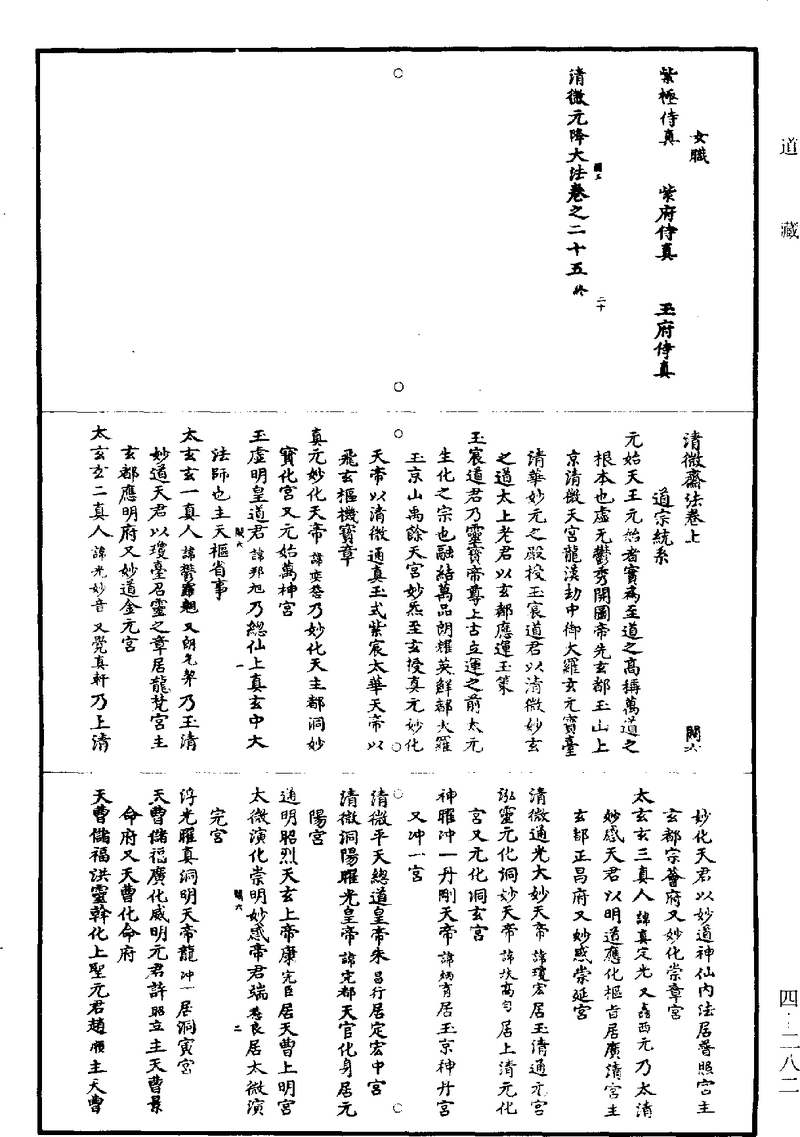 道藏
女職
紫極侍真　紫府侍真　玉府侍真
清微元降大法卷之二十五　終
二十
清微齋法卷上
道宗統系
元始天王元始者實為至道之高稱萬道之
根本也虛无鬱秀開圖帝先玄都玉山上
京清微天宮龍漢劫中御大羅玄元寶臺
清華妙元之殿授玉宸道君以清微妙玄
之道太上老君以玄都應運玉策
玉宸道君乃靈寶帝尊上古立運之前太元
生化之宗也融結萬品朗耀英鮮都大羅
玉京山禹餘天宮妙炁至玄授真元妙化
天帝以清微通真玉式紫宸太華天帝以
飛玄樞機寶章
真元妙化天帝諱奕乃妙化天主都洞妙
寶化宮又元始萬神宮
玉虛明皇道君諱邦旭乃總仙上真玄中大
法師也主天樞省事
一
太玄玄一真人諱鬱羅翹又朗元契乃玉清
妙道天君以瓊臺召靈之章居龍梵宮主
玄都應明府又妙道金元宮
太玄玄二真人諱光妙音又覺真軒乃上清
妙化天君以妙道神仙內法居普照宮主
玄都宗薈府又妙化崇章宮
太玄玄三真人諱真定光又鑫西元乃太清
妙感天君以明道應化樞旨居廣清宮主
玄都正昌府又妙感崇延宮
清微通光大妙天帝諱瓊宏居玉清通元宮
泓靈元化洞妙天帝諱扶高居上清元化
宮又元化洞玄宮
神曜沖一丹剛天帝諱炳育居玉京神丹宮
又沖一宮
清微平天總道皇帝朱昌行居定宏中宮
清微洞陽曜光皇帝諱定都天官化身居元
陽宮
道明昭烈天玄上帝康完臣居天曹上明宮
太微演化崇明妙感帝君端良居太微演
完宮
二
浮光曜真洞明天帝龍沖一居洞賓宮
天曹儲福廣化威明元君許昭立主天曹景
命府又天曹化命府
天曹儲福洪靈幹化上聖元君趙順主天曹
四·二八二